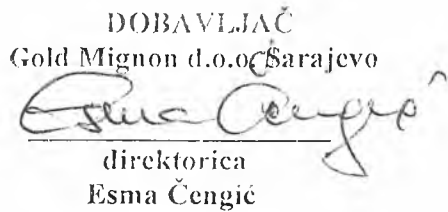 DOBAVLJAČ
Gold Mignon d.o.o. Sarajevo
Esma Čengić
direktorica
Esma Čengić